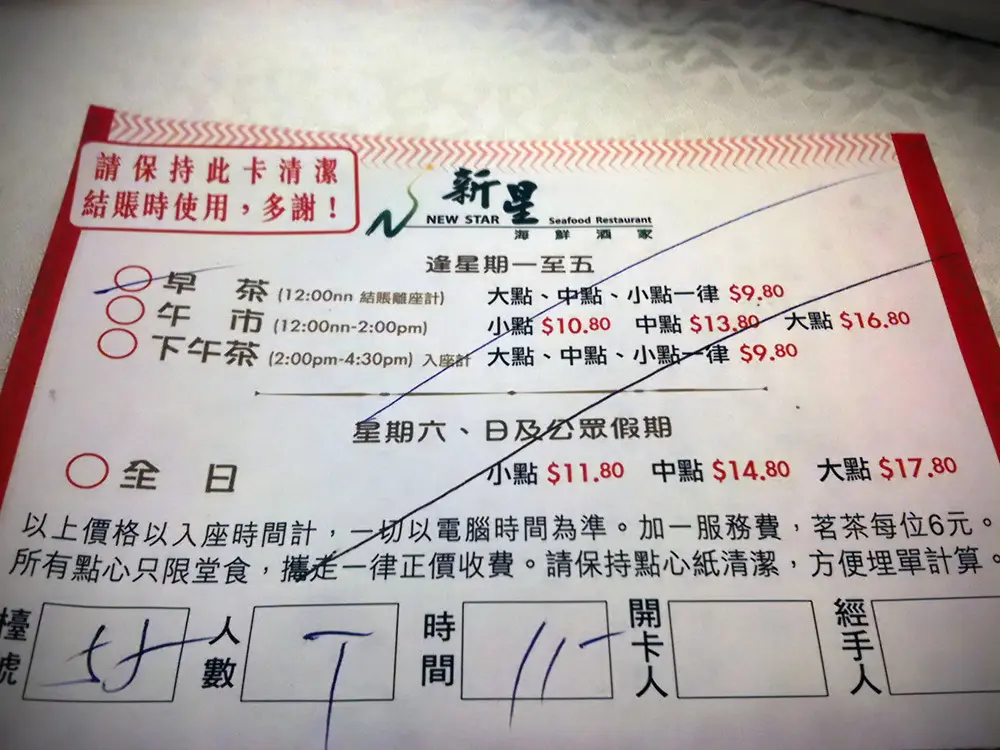 請保持此卡清潔
結賬時使用，多謝！
新星
NEW STAR Seafood Restaurant
海鮮酒家
逢星期一至五
早茶 (12:00nn 結賬離座計) 大點、中點、小點一律 $9.80
午市 (12:00nn-2:00pm) 小點 $10.80 中點 $13.80 大點 $16.80
下午茶 (2:00pm-4:30pm) 入座計 大點、中點、小點一律 $9.80
星期六、日及公眾假期
全日 小點 $11.80 中點 $14.80 大點 $17.80
以上價格以入座時間計，一切以電腦時間為準。加一服務費，茗茶每位6元。
所有點心只限堂食，攜走一律正價收費。請保持點心紙清潔，方便埋單計算。
檯號 人數 時間 11 開卡人 經手人